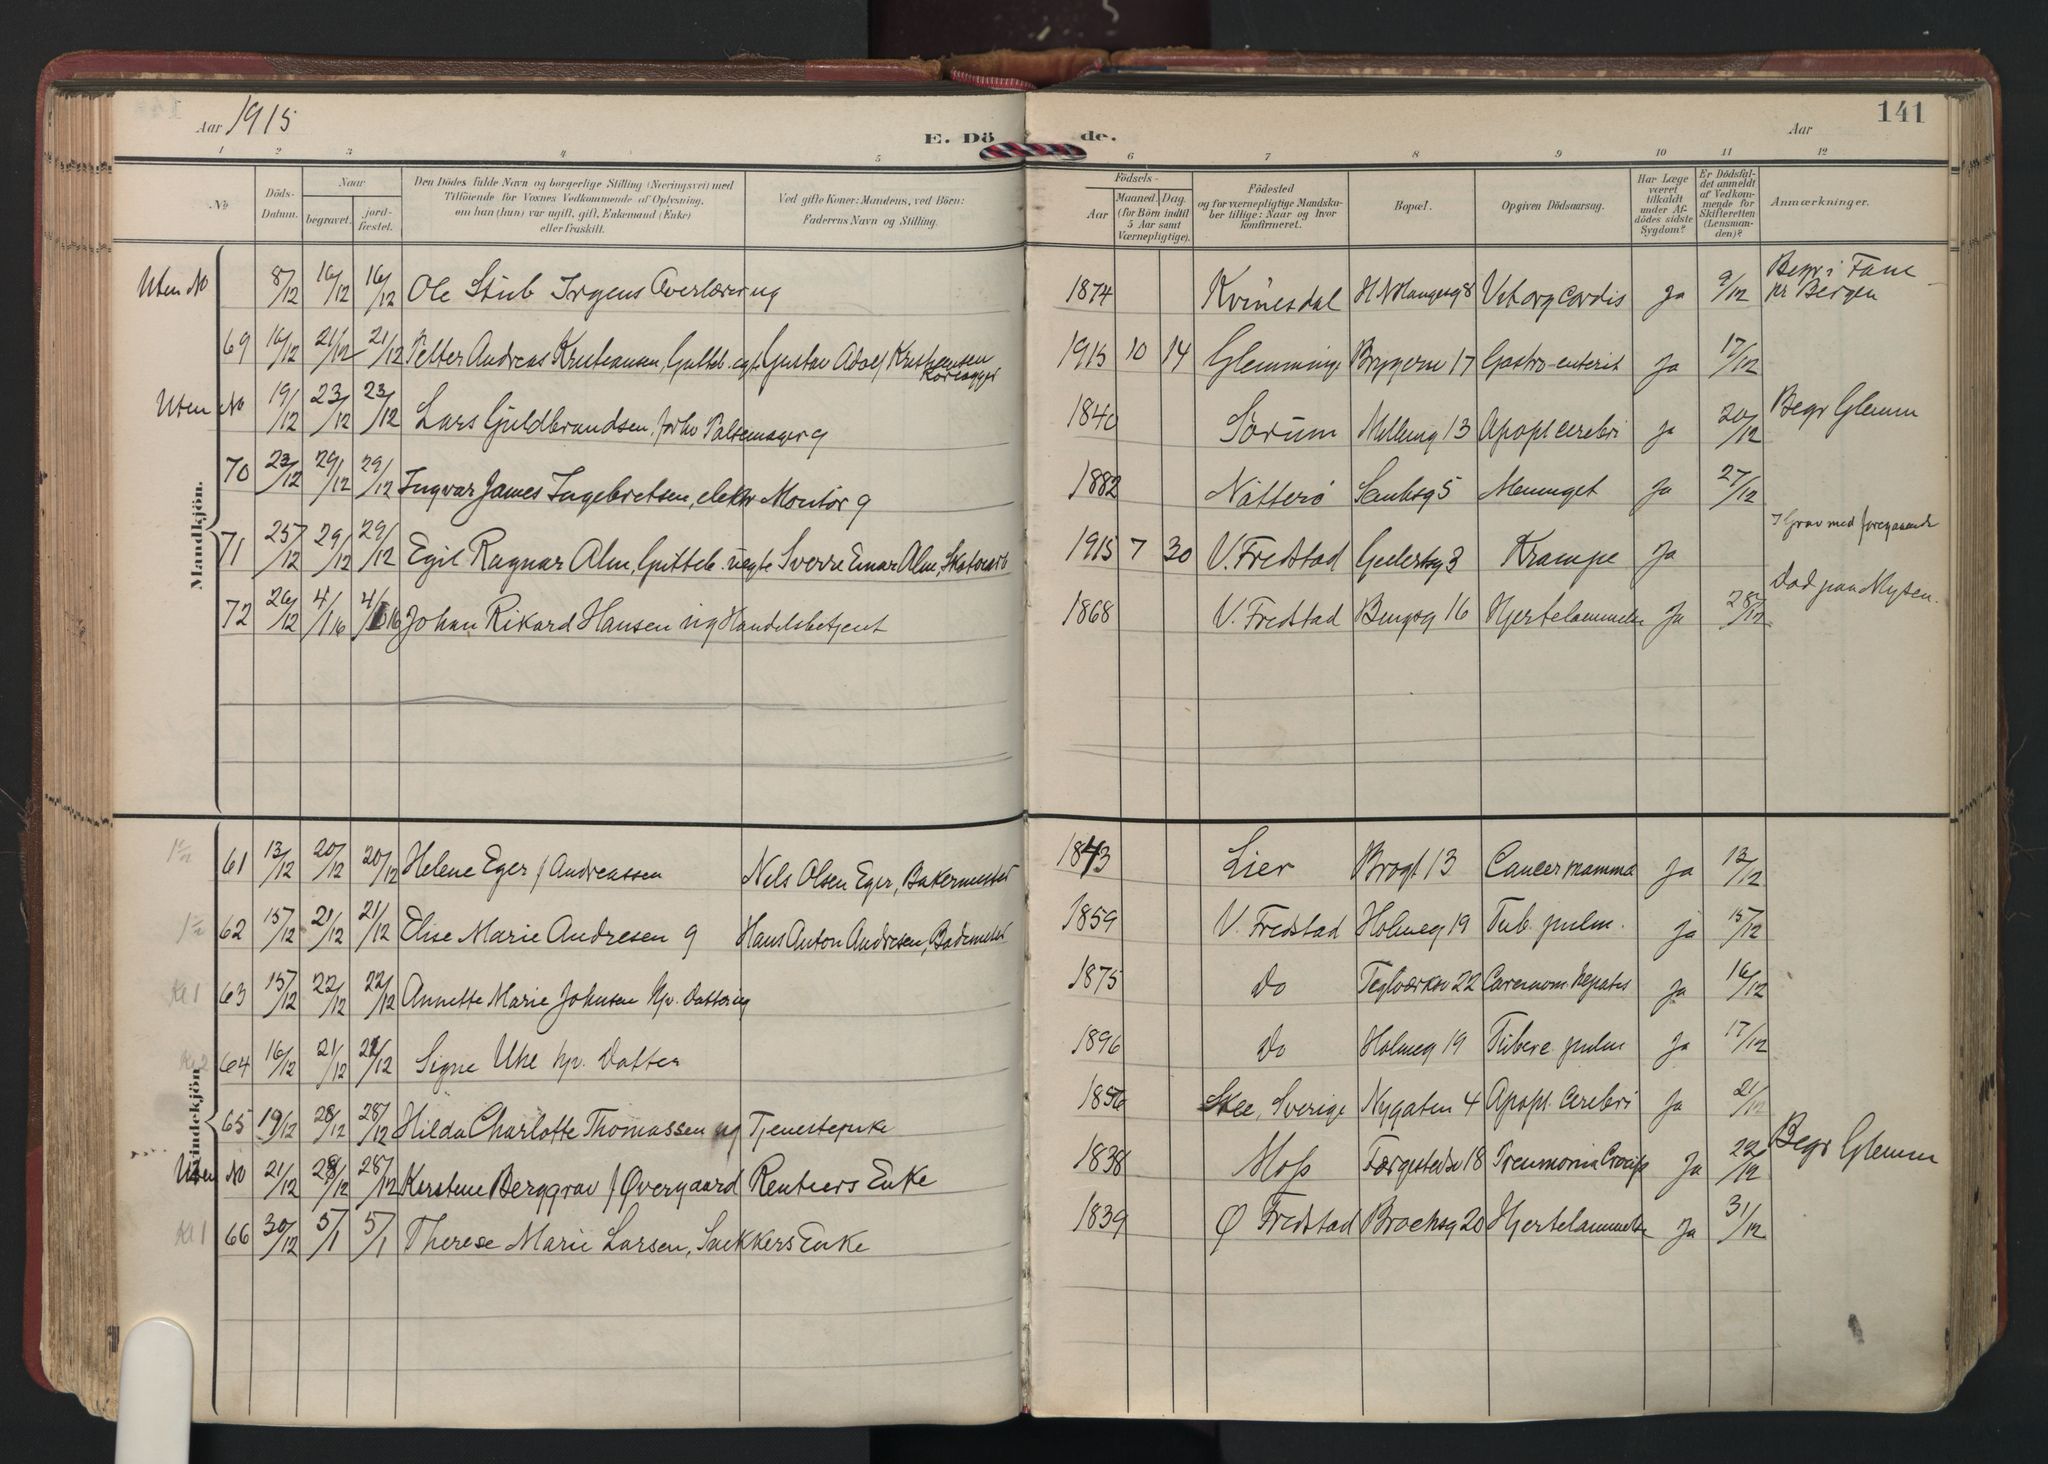 141
Aar 1915
E. Dö de.
Aar
1 2 3 4 5 6 7 8 9 10 11 12
No
Döds-Datum.
Naar
begravet.
jord-fæstet.
Den Dödes fulde Navn og borgerlige Stilling (Næringsvei) med
Tilföiende for Voxnes Vedkommende af Oplysning,
om han (hun) var ugift, gift, Enkemand (Enke)
eller fraskilt.
Ved gifte Koner: Mandens, ved Börn:
Faderens Navn og Stilling.
Födsels-
Aar
Maaned. Dag.
(for Börn indtil
5 Aar samt
Værnepligtige).
Födested
og for værnepligtige Mandska-
ber tillige: Naar og hvor
konfirmeret.
Bopæl.
Opgiven Dödsaarsag.
Har Læge
været
tilkaldt
under Af-
dödes sidste
Sygdom?
Er Dödsfal-
det anmeldt
af Vedkom-
mende for
Skifteretten
(Lensman-
den)?
Anmærkninger.
Mandkjön.
Uten No 8/12 16/12 16/12 Ole Stub Irgens Overlærer ug 1874 Kvinesdal Vit. org. cordis ja 9/12 Begr i Fane pr Bergen
69 16/12 21/12 21/12 Petter Andreas Kristiansen, Gutteb. egt. Gustav Adolf Kristiansen 1915 10 14 Glemminge Bryggerv 17 Gastro-enterit Ja 17/12
Uten No 19/12 23/12 23/12 Lars Guldbrandsen, forhv Pølsemager g 1840 Sørum 13 Apopl. cerebri ja 20/12 Begr Glemm
70 23/12 29/12 29/12 Ingvar James Ingebretsen, elektr Montør g 1882 Nøtterø 5 Meninget Ja 27/12
71 25/12 29/12 29/12 Egil Ragnar Alm, Gutteb. uegte Sverre Einar Alm, 1915 7 30 V. Fredstad 3 Krampe Ja I Grav med foregaaende
72 26/12 4/1 16 4/1 16 Johan Rikard Hansen ug Handelsbetjent 1868 V. Fredstad 16 Hjertelammelse Ja 28/12 Død paa
Kvindekjön
61 13/12 20/12 20/12 Helene Eger f Andreassen Nels Olsen Eger, Bakermester 1843 Lier Brogt 13 Cancer mamma Ja 13/12
62 15/12 21/12 21/12 Elise Marie Andresen g Hans Anton Andresen, Bademester 1859 V. Fredstad Holmeg 19 Tub. pulm. ja 15/12
Kl 1 63 15/12 22/12 22/12 Annette Marie Johnsen hjv. Datter ug 1875 Do Teglværksv 22 Carcinom. hepatis Ja 16/12
Kl 2 64 16/12 21/12 21/12 Signe Uhe hjv. Datter 1896 Do Holmeg 19 Tuberc. pulm Ja 17/12
65 19/12 28/12 28/12 Hilda Charlotte Thomassen ug Tjenestepike 1856 Skee, Sverige Nygaten 4 Apopl. cerebri Ja 21/12
Uten No 21/12 28/12 28/12 Kirstine Berggrav f Øvergaard Rentiers Enke 1838 Moss Færgestedsv 18 Pneumonia Croup Ja 22/12 Begr Glemm
Kl 1 66 30/12 5/1 5/1 Therese Marie Larsen, Snekkers Enke 1839 Ø Fredstad Brochsg 20 Hjertelammelse Ja 31/12